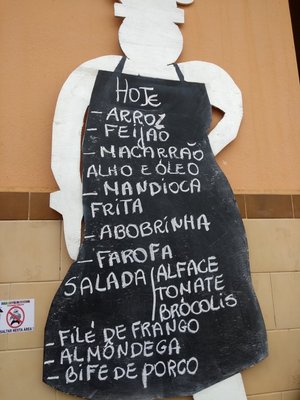 HOJE
- ARROZ
- FEIJÃO
- MACARRÃO
ALHO E ÓLEO
- MANDIOCA
FRITA
- ABOBRINHA
- FAROFA
SALADA ALFACE
TONATE
BRÓCOLIS
- FILÉ DE FRANGO
- ALMÔNDEGA
- BIFE DE PORCO